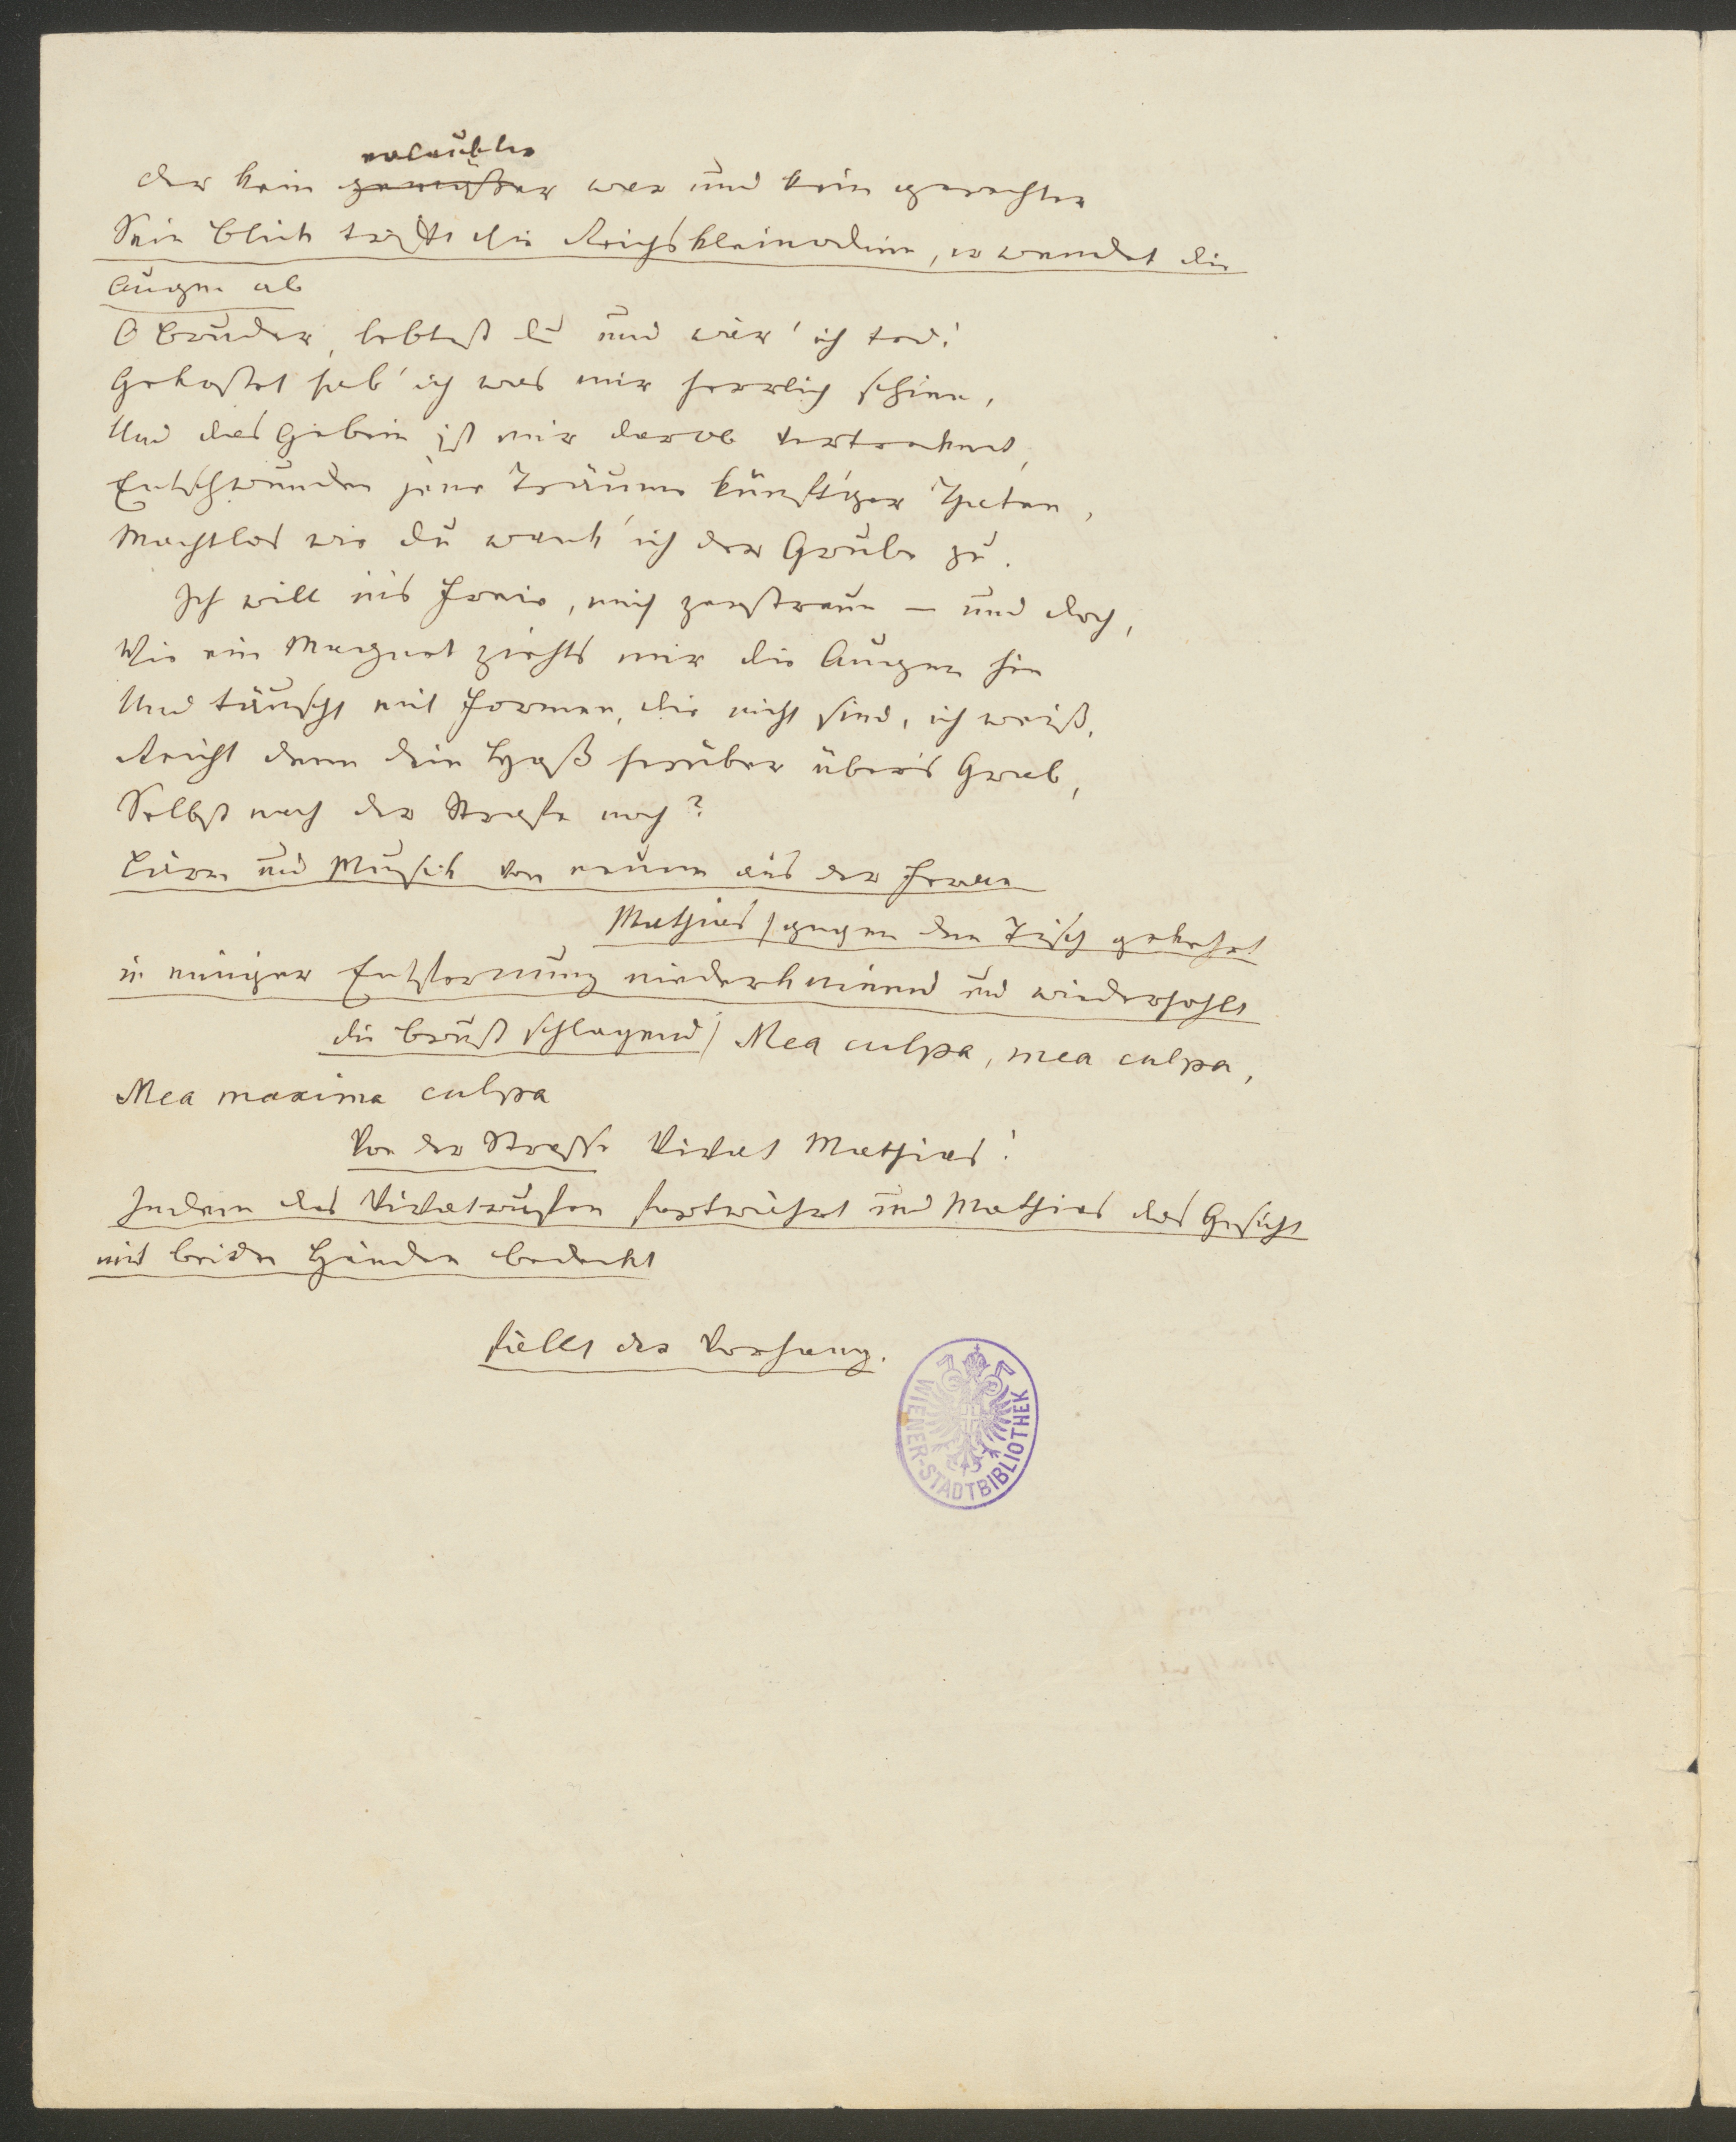 erlaubter
Der kein gemäßer war und kein gerechter
Sein Blick trifft die Reichskleinodien, er wendet die
Augen ab
O Bruder, lebtest du und wär' ich tod!
Gekostet hab' ich was mir herrlich schien,
Und das Gebein ist mir darob vertrocknet,
Entschwunden jene Träume künft'ger Thaten,
Machtlos wie du wank' ich der Grube zu.
Ich will ins Freie, mich zerstreun – und doch,
Wie ein Magnet ziehts mir die Augen hin
Und täuscht mit Formen, die nicht sind, ich weiß.
Reicht denn dein Haß herüber über's Grab,
Selbst nach der Strafe noch?
Lärm und Musik von neuem aus der Ferne
Mathias /gegen den Tisch gekehrt
in einiger Entfernung niederknieend und wiederholt
die Brust schlagend/ Mea culpa, mea culpa,
Mea maxima culpa
Von der Strasse Vivat Mathias!
Indem das Vivatrufen fortwährt und Mathias das Gesicht
mit beiden Händen bedeckt
fällt der Vorhang.
WIENER-STADTBIBLIOTHEK